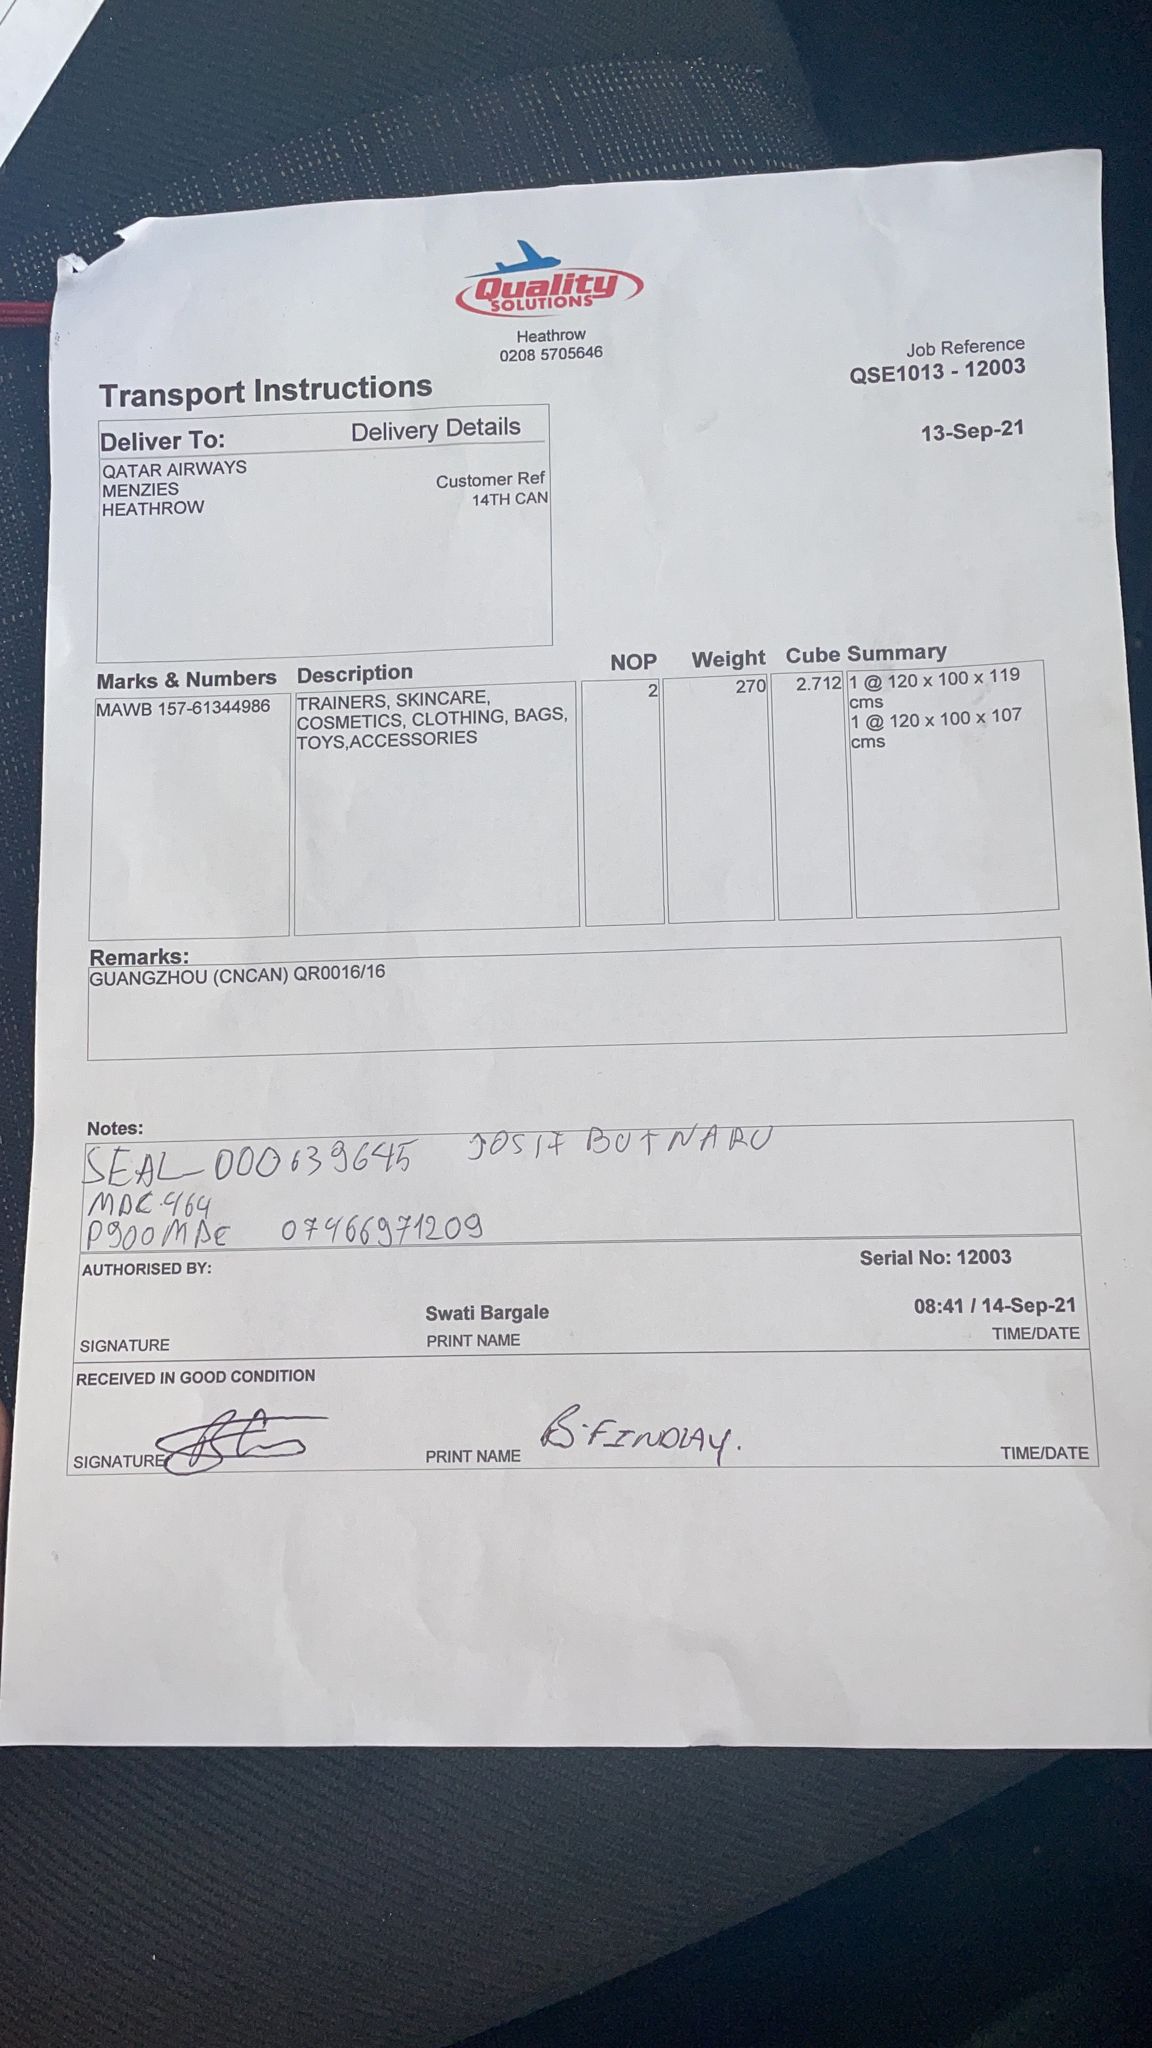 Quality
SOLUTIONS
Heathrow
0208 5705646
Job Reference
QSE1013 - 12003
Transport Instructions
13-Sep-21
Deliver To: Delivery Details
QATAR AIRWAYS
MENZIES
HEATHROW
Customer Ref
14TH CAN
Marks & Numbers Description NOP Weight Cube Summary
MAWB 157-61344986
TRAINERS, SKINCARE,
COSMETICS, CLOTHING, BAGS,
TOYS,ACCESSORIES
2
270
2.712
1 @ 120 x 100 x 119
cms
1 @ 120 x 100 x 107
cms
Remarks:
GUANGZHOU (CNCAN) QR0016/16
Notes:
SEAL-000639645 BUTNARU
464
07466971209
AUTHORISED BY:
Serial No: 12003
Swati Bargale
08:41 / 14-Sep-21
SIGNATURE PRINT NAME TIME/DATE
RECEIVED IN GOOD CONDITION
B.FINDLAY.
SIGNATURE PRINT NAME TIME/DATE